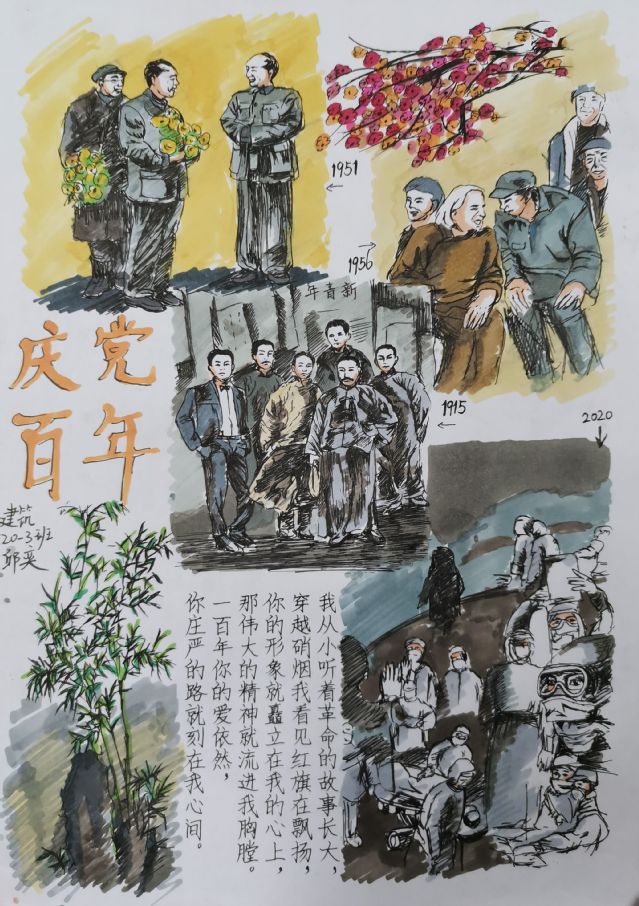 1951
1956
新青年
庆党
百年
1915
2020
建筑
20-3班
我从小听着革命的故事长大，
穿越硝烟我看见红旗在飘扬，
你的形象就矗立在我的心上，
那伟大的精神就流进我胸膛。
一百年你的爱依然，
你庄严的路就刻在我心间。